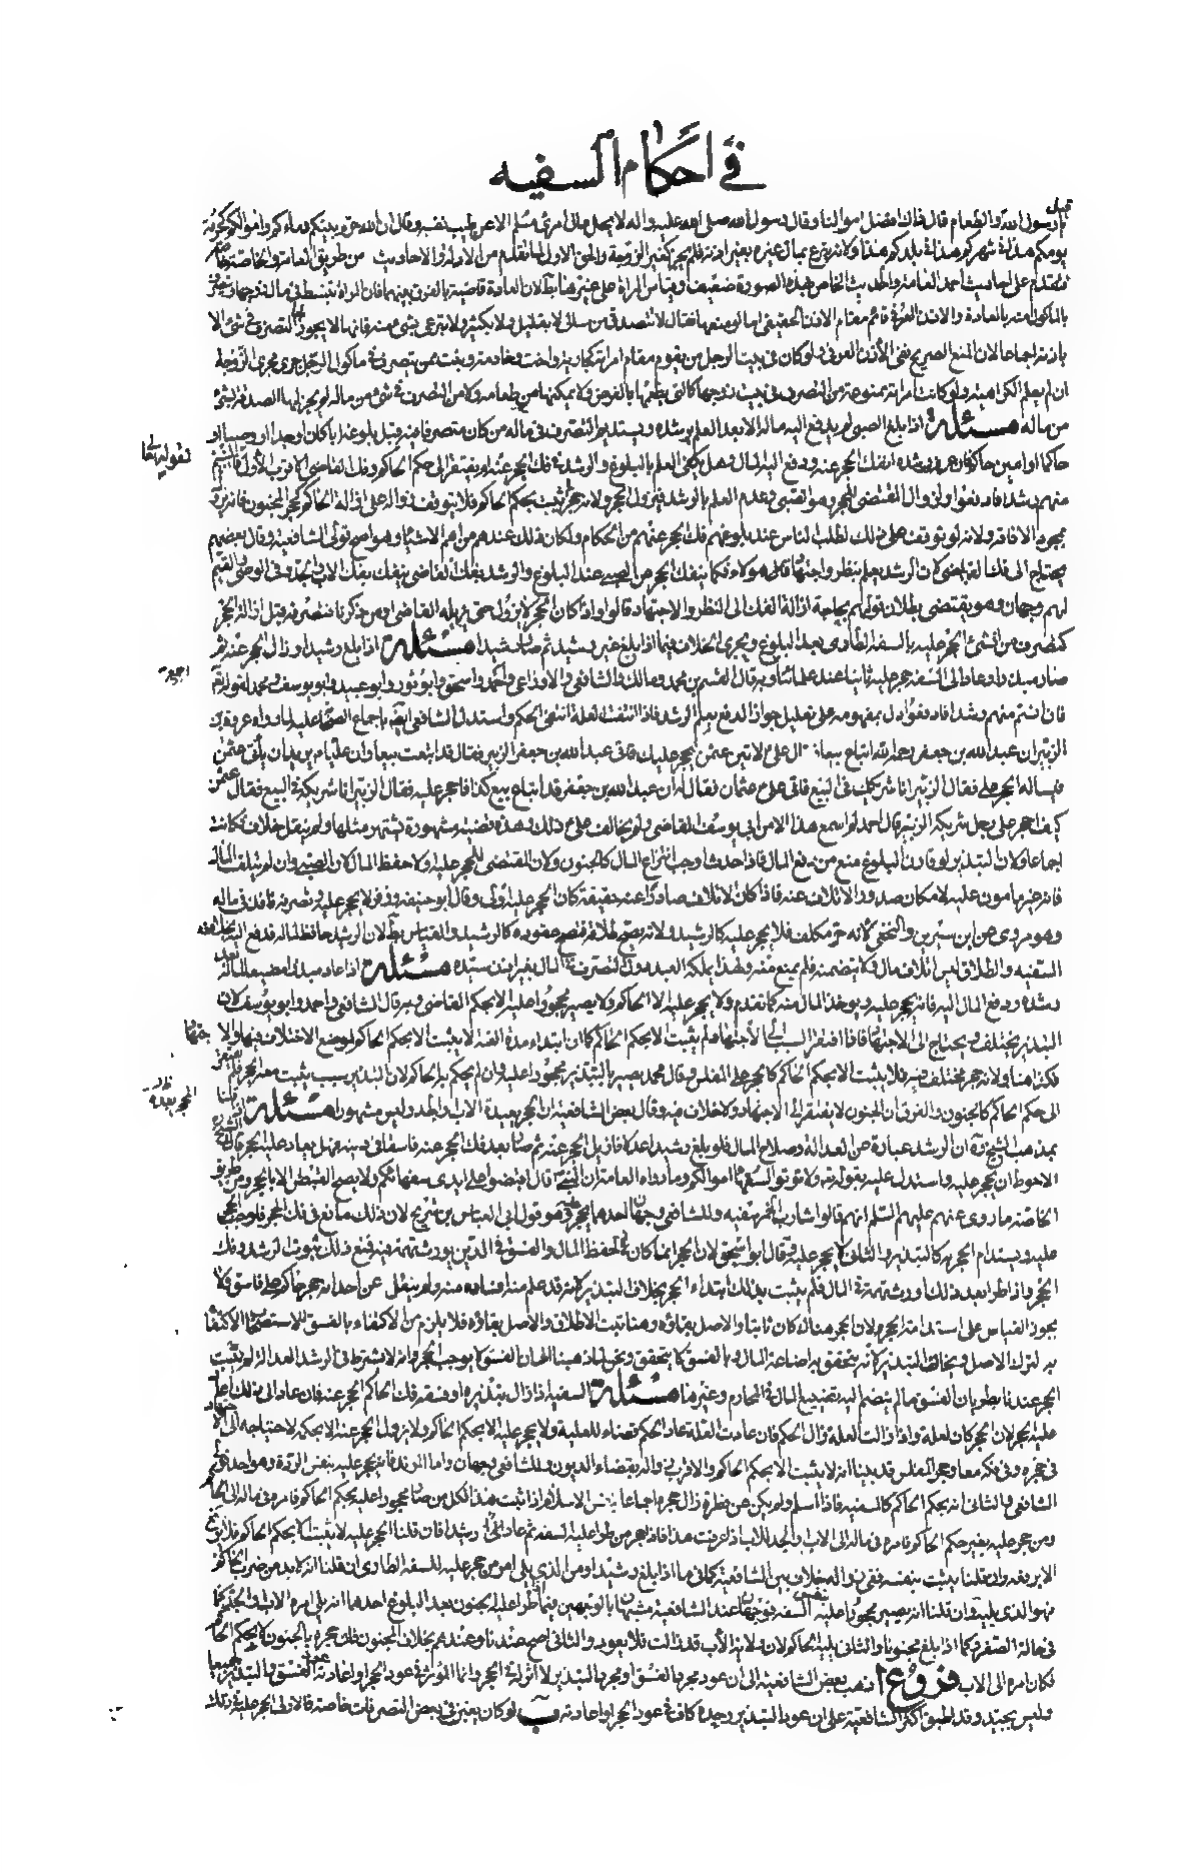 في احكام السفيه
رسول الله والطعام قال ذاك افضل اموالنا وقال رسول الله صلى الله عليه واله لا يحل مال امرئ مسلم الا عن طيب نفسه وقال ان الله حرم بينكم دماءكم واموالكم كحرمة
يومكم هذا في شهركم هذا في بلدكم هذا ولانه تبرع بمال غيره بغير اذنه فلم يجز كغير الزوجة والحق الاول لما تقدم من الادلة والاحاديث من طريق العامة والخاصة خاصة
فتقدم على احاديث العامة والحديث الخاص بهذه الصورة ضعيف وقياس المراة على غيرها باطل لان العادة قاضية بالفرق بينهما فان المراة تنبسط في مال زوجها
بالماكول منه بالعادة والاذن العرفي قائم مقام الاذن الحقيقي اما لو منعها فقال لا تتصدق من مالي لا بقليل ولا بكثير ولا تتبرعي بشئ منه فانها لا يجوز لها التصرف في شئ الا
باذنه اجماعا لان المنع الصريح نفى الاذن العرفي ولو كان في بيت الرجل من يقوم مقام امراته كجاريته واخته وخادمته وبنته ممن يتصرف في ماكول الرجل جرى مجرى الزوجة
ان لم يعلم الكراهية ولو كانت امراته ممنوعة من التصرف في بيت زوجها كالتي يطعمها بالفرض ولا يمكنها من طعامه ولا من التصرف في شئ من ماله لم يجز لها الصدقة بشئ
من ماله مسئلة اذا بلغ الصبي لم يدفع اليه ماله الا بعد العلم برشده ويستديم التصرف في ماله من كان متصرفا فيه قبل بلوغه ابا كان او جدا او وصيا او
حاكما او امين حاكم فان عرف رشده انفك الحجر عنه ودفع اليه المال وهل يكفي العلم بالبلوغ والرشد في فك الحجر عنه او يفتقر الى حكم الحاكم وفك القاضي الاقرب الاول
منهم رشدا فادفعوا ولزوال المقتضي للحجر وهو يقتضي عدم العلم بالرشد فيزول الحجر ولانه حجر لم يثبت بحكم الحاكم فلا يتوقف زواله على ازالة الحاكم كحجر المجنون فانه يزول
بمجرد الافاقة ولانه لو توقف على ذلك لطلب الناس عند بلوغهم فك الحجر عنهم من الحكام ولكان ذلك عندهم من اهم الاشياء وهو اصح قولي الشافعية وقال بعضهم
يحتاج الى فك القاضي لان الرشد يعلم بنظر واجتهاد قال هؤلاء فكما ينفك الحجر عن الصبي عند البلوغ والرشد بفك القاضي ينفك بفك الاب والجد وفي الوصي والقيم
لهم وجهان وهو يقتضي بطلان قولهم بحاجة ازالة الفك الى النظر والاجتهاد قالوا واذا كان الحجر لا يزول حتى يزيله القاضي ومن ذكرنا فتصرفه قبل ازالة الحجر
كتصرف من انشئ الحجر عليه بالسفه الطاري بعد البلوغ ويجري الخلاف فيما اذا بلغ غير رشيد ثم صار رشيدا مسئلة اذا بلغ رشيدا وزال الحجر عنه ثم
صار مبذرا وعاد الى السفه حجر عليه ثانيا عند علمائنا وبه قال القسم بن محمد ومالك والشافعي والاوزاعي واحمد واسحق وابو ثور وابو عبيد وابو يوسف ومحمد لقوله تعالى
فان انستم منهم رشدا فادفعوا دل بمفهومه على تعليل جواز الدفع بعلم الرشد فاذا انتفت العلة انتفى الحكم واستدل الشافعي ايضا باجماع الصحابة عليه لما رواه عروة بن
الزبير ان عبد الله بن جعفر رحمه الله ابتاع بيعا فقال علي لاتين عثمن ليحجر عليك فاتى عبد الله بن جعفر الزبير فقال قد ابتعت بيعا وان عليا يريد ان ياتي عثمن
فيساله الحجر علي فقال الزبير انا شريكك في البيع فاتى علي عثمان فقال له ان عبد الله بن جعفر قد ابتاع بيع كذا فاحجر عليه فقال الزبير انا شريكه في البيع فقال عثمن
كيف احجر على رجل شريكه الزبير قال احمد لم اسمع هذا الا من ابي يوسف القاضي ولم يخالف علي ذلك وهذه قضية مشهورة يشتهر مثلها ولم ينقل خلاف فكانت
اجماعا ولان التبذير لو قارن البلوغ منع من دفع المال فاذا حدث اوجب انتزاع المال كالجنون ولان المقتضي للحجر عليه اولا حفظ المال لان الصبي وان لم يتلف المال
فانه غير مامون عليه لامكان صدور الاتلاف عنه فاذا كان الاتلاف صادرا عنه حقيقة كان الحجر عليه اولى وقال ابو حنيفة وزفر لا يحجر عليه وتصرفه نافذ في ماله
وهو مروي عن ابن سيرين والنخعي لانه حر مكلف فلا يحجر عليه كالرشيد ولانه يصح طلاقه فتصح عقوده كالرشيد والقياس باطل لان الرشيد حافظ لماله فدفع اليه بخلاف
السفيه والطلاق ليس اتلاف مال ولا يتضمنه فلم يمنع منه ولهذا يملكه العبد دون التصرف في المال بغير اذن سيده مسئلة اذا عاد مبذرا مضيعا لماله
رشده ودفع المال اليه فانه يحجر عليه ويؤخذ المال منه كما تقدم ولا يحجر عليه الا الحاكم ولا يصير محجورا عليه الا بحكم القاضي وبه قال الشافعي واحمد وابو يوسف لان
التبذير يختلف ويحتاج الى الاجتهاد فاذا افتقر السبب الى الاجتهاد لم يثبت الا بحكم الحاكم كما ان ابتداء مدة العنة لا يثبت الا بحكم الحاكم لموضع الاختلاف فيها والاجتهاد
فكذا هنا ولانه حجر مختلف فيه فلا يثبت الا بحكم الحاكم كالحجر على المفلس وقال محمد يصير بالتبذير محجورا عليه وان لم يحكم به الحاكم لان التبذير سبب يثبت معه الحجر فلم يفتقر
الى حكم الحاكم كالجنون والفرق ان الجنون لا يفتقر الى الاجتهاد ولا خلاف فيه وقال بعض الشافعية ان الحجر يعيده الاب والجد وليس مشهورا مسئلة
بمذهب الشيخ ره ان الرشد عبارة عن العدالة وصلاح المال فلو بلغ رشيدا عدلا فازيل الحجر عنه ثم صار بعد فك الحجر عنه فاسقا في دينه فهل يعاد عليه الحجر قال الشيخ
الاحوط ان يحجر عليه واستدل عليه بقوله تعالى ولا تؤتوا السفهاء اموالكم وما رواه العامة ان النبي ص قال اقبضوا على ايدي سفهائكم ولا يصح القبض الا بالحجر ومن طريق
الخاصة ما روي عنهم عليهم السلم انهم قالوا شارب الخمر سفيه وللشافعي وجهان احدهما يحجر عليه وهو قول ابي العباس بن شريح لان ذلك مانع في فك الحجر فاوجب الحجر
عليه ويستدام الحجر به كالتبذير والثاني لا يحجر عليه وقال ابو اسحق لان الحجر انما كان لحفظ المال والفسق في الدين يورث تهمة فيه فمنع ذلك ثبوت الرشد وفك
الحجر واذا طرا بعد ذلك اورث تهمة في المال فلم يثبت بذلك ابتداء الحجر بخلاف التبذير لانه قد علم منه افساده منه ولم ينقل عن احد انه حجر حاكم على فاسق ولا
يجوز القياس على استدامة الحجر لان الحجر هناك كان ثابتا والاصل بقاؤه وهنا ثبت الاطلاق والاصل بقاؤه فلا يلزم من الاكتفاء بالفسق للاستصحاب الاكتفاء
به لترك الاصل ويخالف التبذير لانه يتحقق به اضاعة المال وبالفسق لا يتحقق ونحن لما ذهبنا الى ان الفسق لا يوجب الحجر وانه لا يشترط في الرشد العدالة لم يثبت
الحجر عندنا بطريان الفسق ما لم ينضم اليه تضييع المال في المحارم وغيرها مسئلة السفيه اذا زال تبذيره او فسقه فك الحاكم الحجر عنه فان عاد الى ذلك اعاد
عليه الحجر لان الحجر كان لعلة واذا زالت العلة زال الحكم فان عادت العلة عاد الحكم قضاء للعلية ولا يحجر عليه الا بحكم الحاكم ولا يزول الحجر عنه الا بحكمه لاحتياجه الى الاجتهاد
في حجره وفي فكه معا وحجر المفلس قد بينا انه لا يثبت الا بحكم الحاكم والاقرب زواله بقضاء الديون وللشافعي وجهان واما المرتد فانه يحجر عليه بنفس الردة وهو احد قولي
الشافعي والثاني انه بحكم الحاكم كالسفيه فاذا اسلم ولم يكن عن فطرة زال حجره اجماعا بنفس الاسلام اذا ثبت هذا فكل من صار محجورا عليه بحكم الحاكم فامره في ماله الى الحاكم
ومن حجر عليه بغير حكم الحاكم فامره في ماله الى الاب والجد للاب اذا عرفت هذا فاذا حجر من طرا عليه السفه ثم عاد رشيدا فان قلنا الحجر عليه لا يثبت الا بحكم الحاكم فلا يرتفع
الا برفعه وان قلنا يثبت بنفسه ففي زواله خلاف بين الشافعية كما في ما اذا بلغ رشيدا ومن الذي يلي امر من حجر عليه للسفه الطاري ان قلنا انه لا بد من ضرب الحاكم
فهو الذي يليه وان قلنا انه يصير محجورا عليه بنفس السفه فوجهان عند الشافعية مشبهان بالوجهين فيما اذا طرا عليه الجنون بعد البلوغ احدهما انه يلي امره الاب والجد كما
في حالة الصغر وكما اذا بلغ مجنونا والثاني يليه الحاكم لان ولاية الاب قد زالت فلا يعود والثاني اصح عندنا وعندهم بخلاف الجنون فان حجره بالجنون لا بحكم الحاكم
فكان امره الى الاب فروع ا ذهب بعض الشافعية الى ان عود مجرد الفسق او مجرد التبذير لا اثر له في الحجر وانما المؤثر في عود الحجر او اعادته عود الفسق والتبذير جميعا
وليس بجيد وقد اطبق اكثر الشافعية على ان عود التبذير وحده كاف في عود الحجر او اعادته ب لو كان يغبن في بعض التصرفات خاصة فالاولى الحجر عليه في ذلك